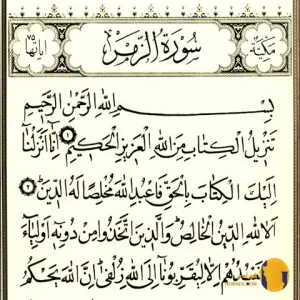 مكية سورة الزمر آياتها ٧٥
بسم الله الرحمن الرحيم
تنزيل الكتاب من الله العزيز الحكيم ١ إنا أنزلنا
إليك الكتاب بالحق فاعبد الله مخلصا له الدين ٢
ألا لله الدين الخالص والذين اتخذوا من دونه أولياء
ما نعبدهم إلا ليقربونا إلى الله زلفى إن الله يحكم